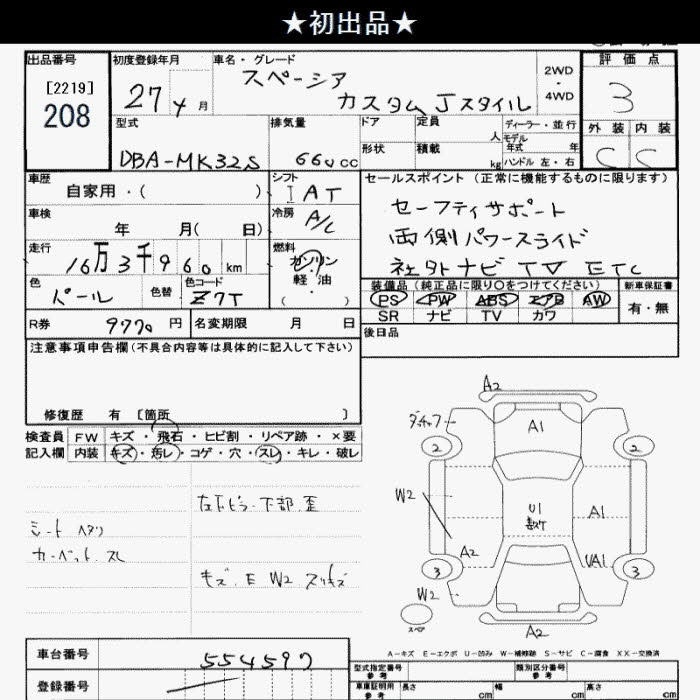 ★初出品★
出品番号
[2219]
208
初度登録年月
27 4 月
車名・グレード
スペーシア
カスタム Jスタイル
2WD
・
4WD
評価点
3
外装 内装
C C
型式
DBA-MK32S
排気量
660 cc
ドア 定員 人
形状 積載 kg
ディーラー・並行
モデル年式 年
ハンドル 左・右
車歴
自家用・( )
シフト
I A T
車検
年 月( 日)
冷房
A/C
走行
16万3千960 km
燃料
ガソリン
軽油
( ・ )
色
パール
色替
色コード
Z7T
R券 9770 円
名変期限 月 日
セールスポイント (正常に機能するものに限ります)
セーフティサポート
両側パワースライド
社外ナビ TV ETC
装備品 (純正品に限り○をつけてください)
PS PW ABS エアB AW
SR ナビ TV カワ
新車保証書
有・無
後日品
注意事項申告欄(不具合内容等は具体的に記入して下さい)
修復歴 有 [箇所 ]
検査員 FW キズ・飛石・ヒビ割・リペア跡・×要
記入欄 内装 キズ・汚レ・コゲ・穴・スレ・キレ・破レ
左リピラー下部歪
シートヘタリ
カーペットスレ
キズ.E W2 スリキズ
A2
A1
2 2
W2
U1
A1
A2
UA1
3 3
W2
スペア
A2
A-キズ E-エクボ U-凹み W-補修跡 S-サビ C-腐食 XX-交換済
車台番号 554597
登録番号
型式指定番号 参考
類別区分番号 参考
車庫証明用 参考 長さ cm 幅 cm 高さ cm